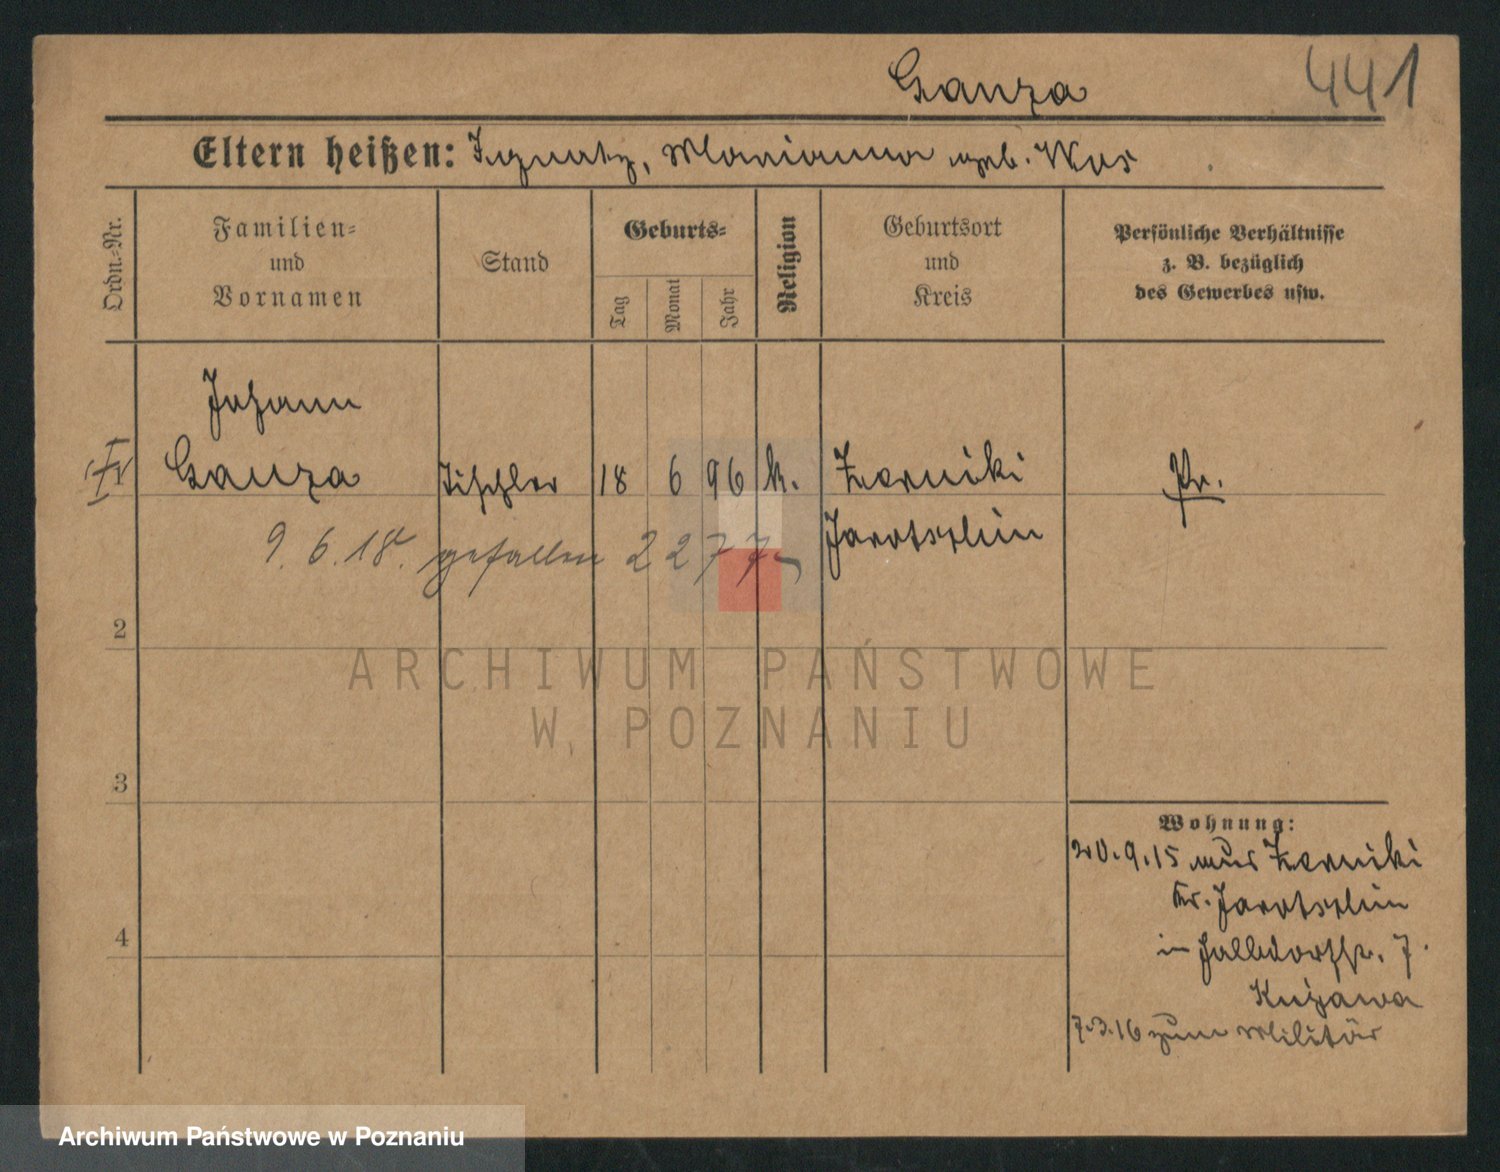 Ganza
441
Eltern heißen: Ignatz, Marianna geb. Wos
Ordn.-Nr.
Familien-
und
Vornamen
Stand
Geburts-
Tag
Monat
Jahr
Religion
Geburtsort
und
Kreis
Persönliche Verhältnisse
z. B. bezüglich
des Gewerbes usw.
Johann
Ganza Tischler 18 6 96 k. Zerniki Pr.
Jarotschin
9.6.18. gefallen 2277
2
ARCHIWUM PAŃSTWOWE
W POZNANIU
3
4
Wohnung:
20.9.15 aus Zerniki
Kr. Jarotschin
in Halbdorfstr. 7.
Kujawa
7.3.16 zum Militär
Archiwum Państwowe w Poznaniu